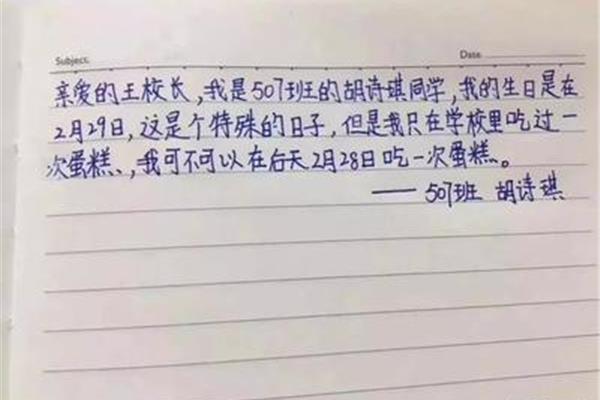 Subject: Date
亲爱的王校长,我是507班的胡诗琪同学,我的生日是在
2月29日,这是个特殊的日子,但是我只在学校里吃过一
次蛋糕、,我可不可以在后天2月28日吃一次蛋糕。
—— 507班 胡诗琪